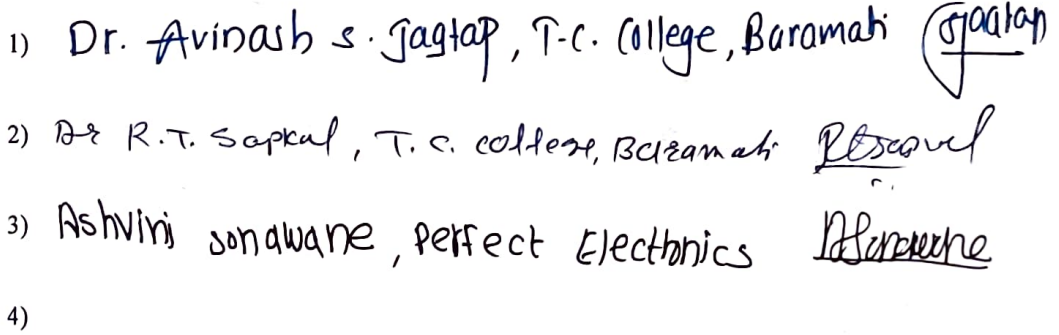 1) Dr. Avinash s. Jagtap, T.C. College, Baramati
2) Dr R.T. Sapkal, T.C. college, Baramati
3) Ashvini sonawane, perfect Electronics
4)